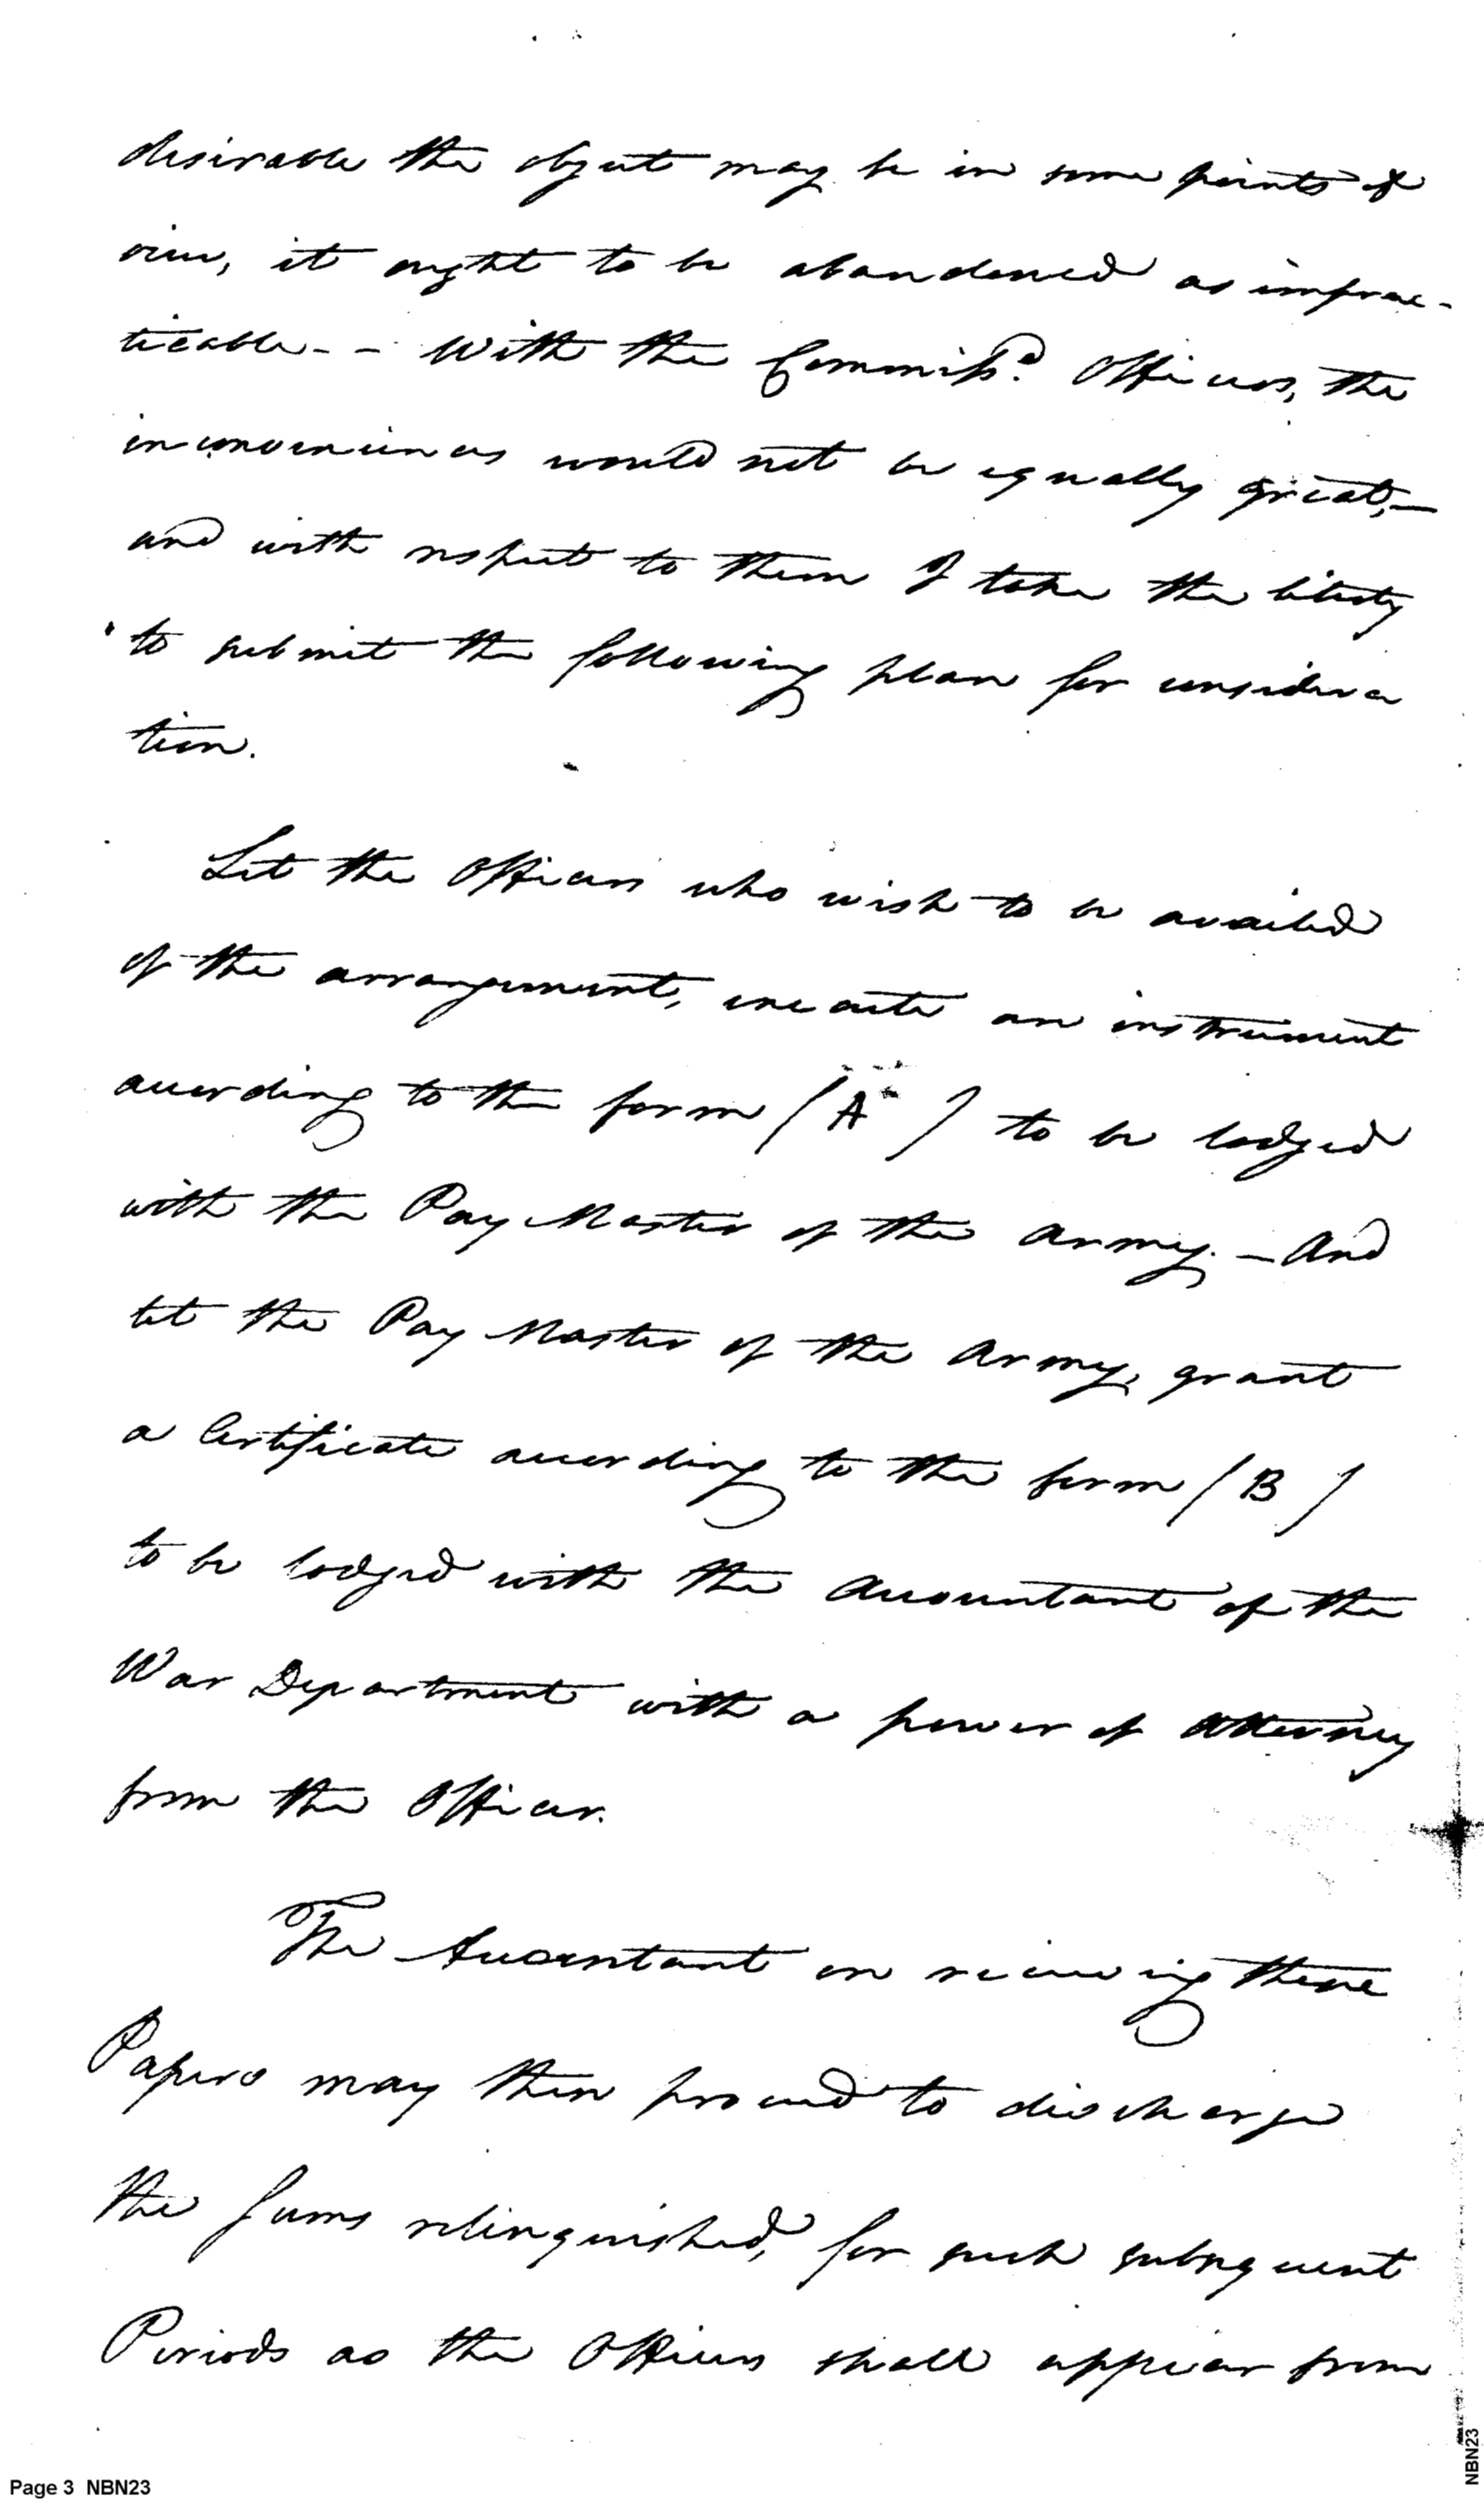 desirable the object may be in some points of
view, it ought to be abandoned as imprac-
ticable - - With the Commissd. Officers, the
inconveniences would not be equally great, -
and with respect to them I take the liberty
to submit the following plan for considera
tion.
Let the Officers who wish to be availed
of the arrangement, execute an instrument
according to the form / A / to be lodged
with the Pay Master of the army. - And
let the Pay Master of the Army, grant
a Certificate according to the form / B /
to be lodged with the Accountant of the
War Department with a power of Attorney
from the Officer.
The Accountant on receiving these
Papers may then proceed to discharge
the sums relinquished, for such subsequent
Periods as the Officers shall appear from
Page 3 NBN23
NBN23